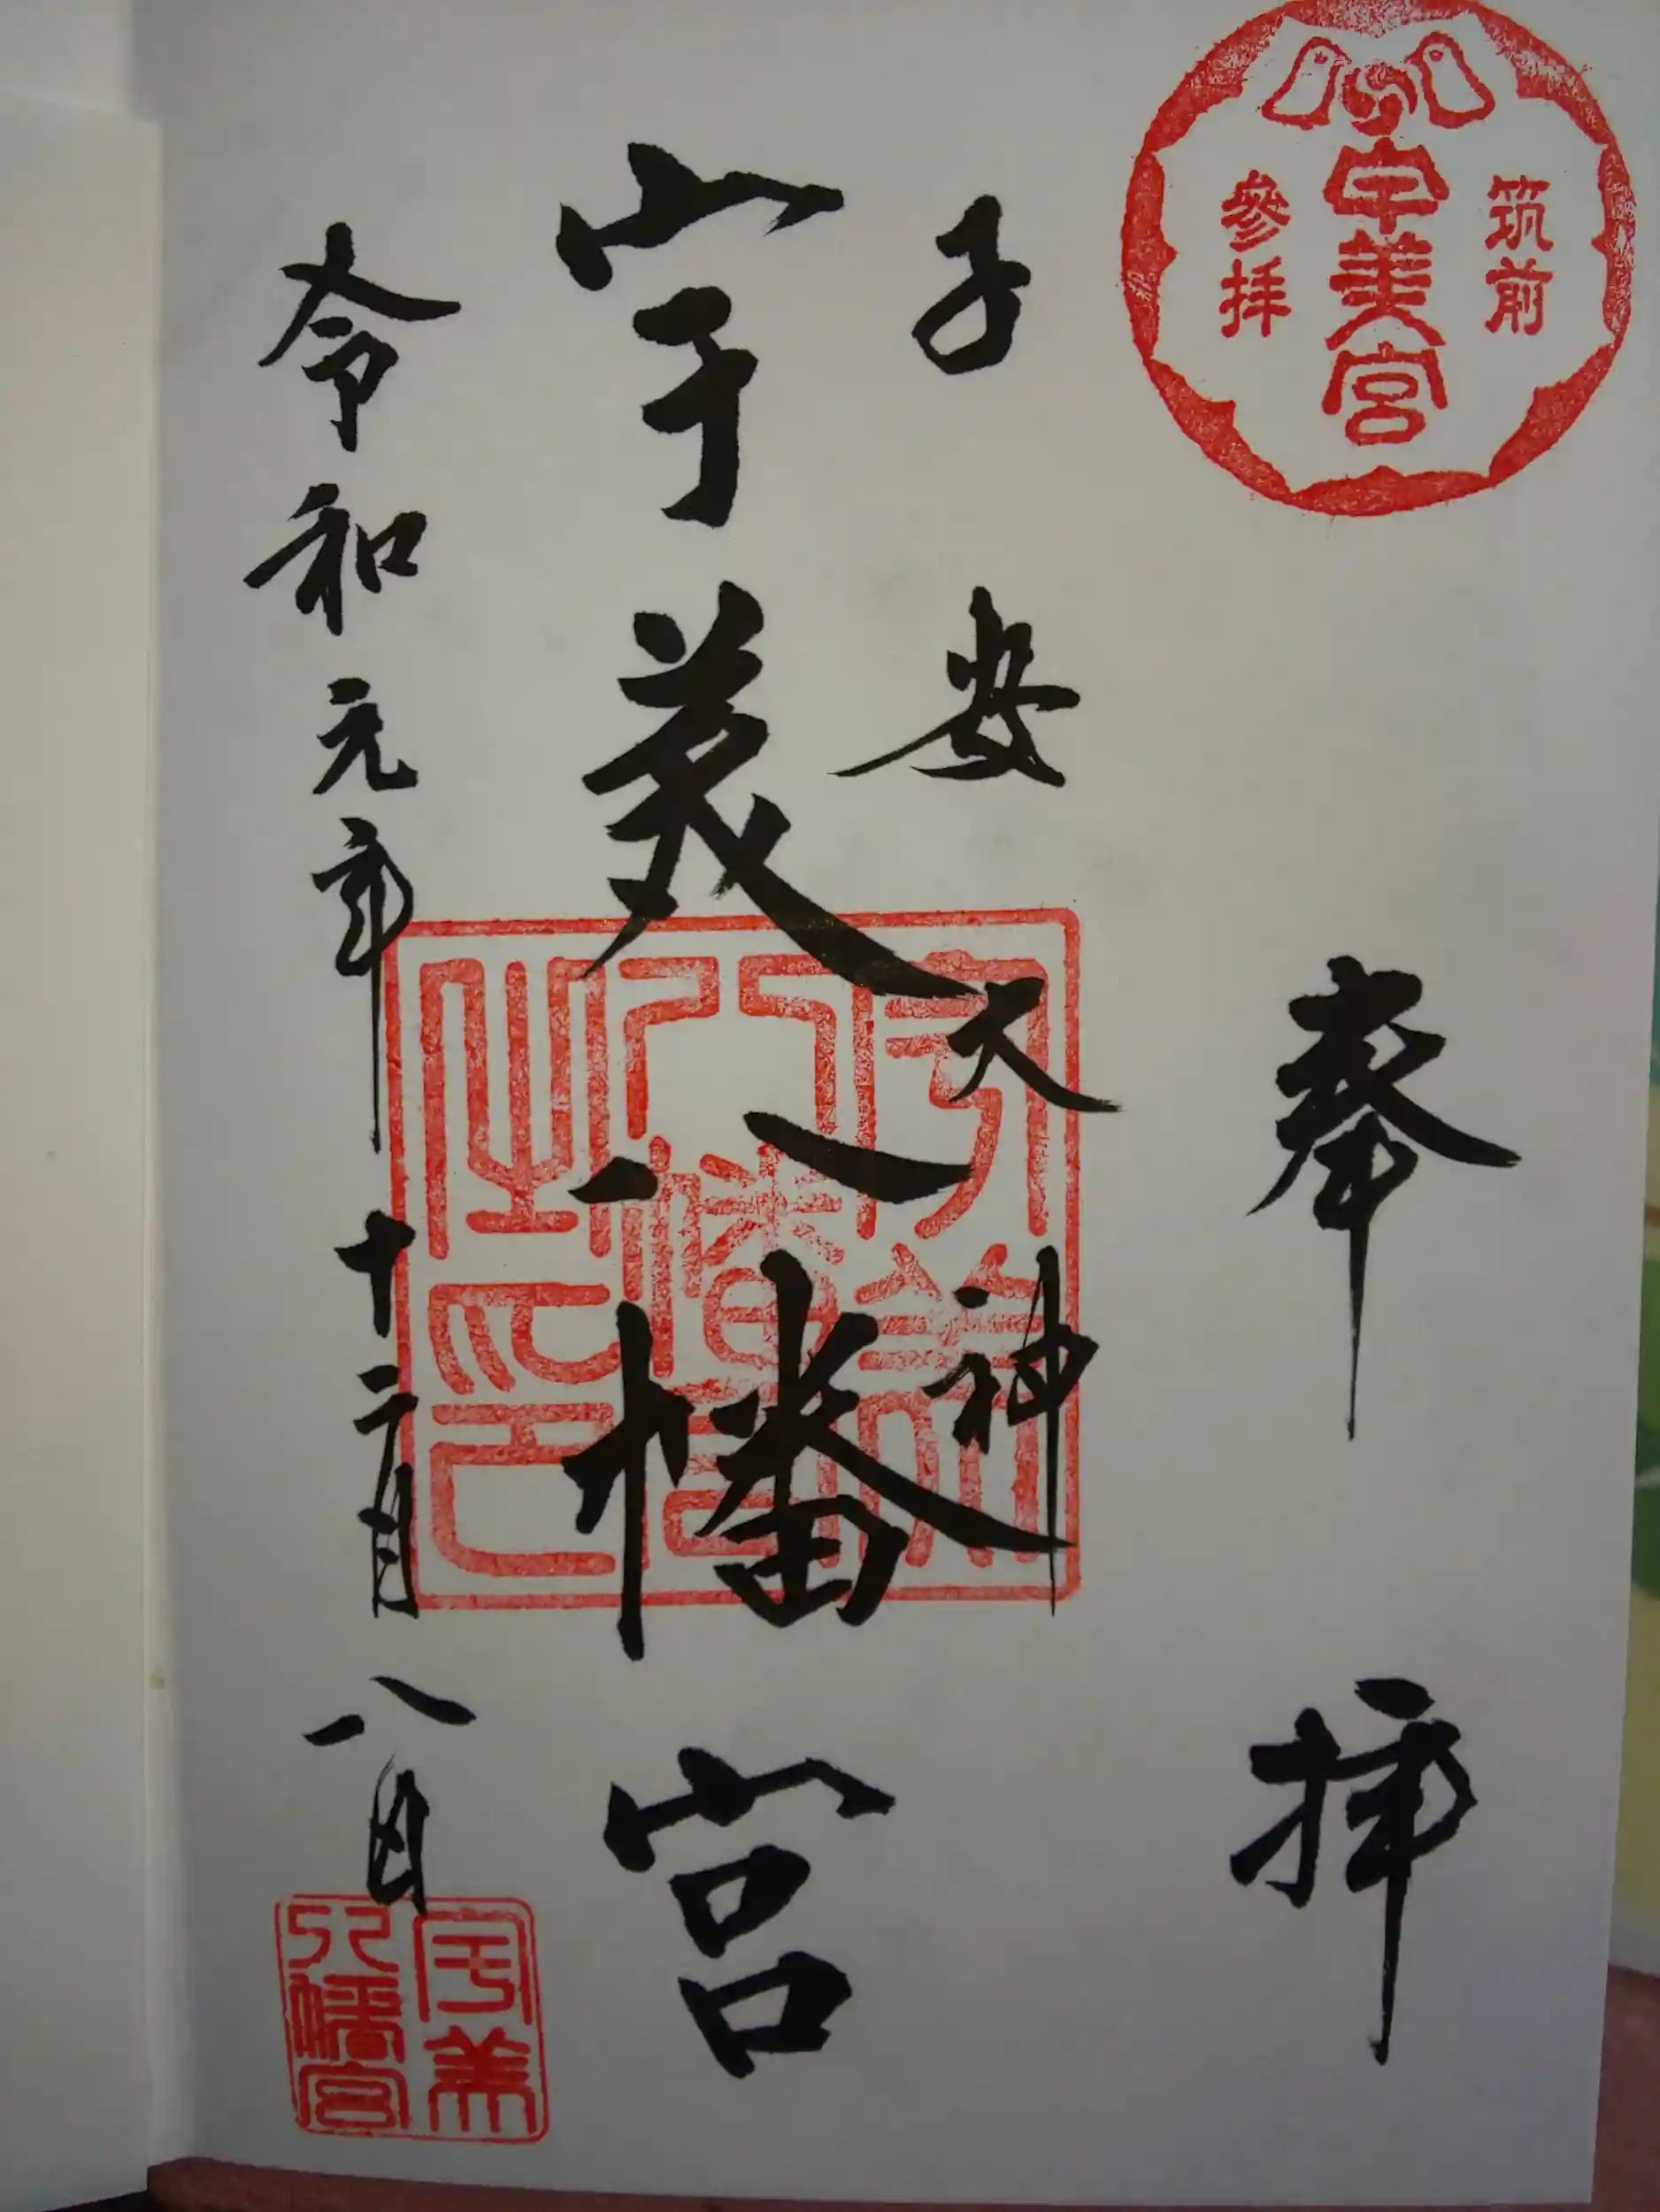 筑前
宇美宮
參拝
奉拝
子安大神
宇美八幡宮
令和元年十二月八日
宇美八幡宮之印
宇美
八幡宮